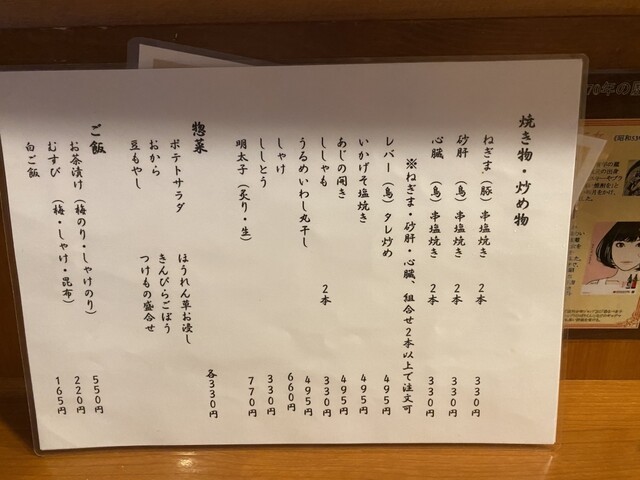 焼き物・炒め物
ねぎま（豚）串塩焼き 2本 330円
砂肝（鳥）串塩焼き 2本 330円
心臓（鳥）串塩焼き 2本 330円
※ねぎま・砂肝・心臓、組合せ2本以上で注文可
レバー（鳥）タレ炒め 495円
いかげそ塩焼き 495円
あじの開き 495円
ししゃも 2本 330円
うるめいわし丸干し 495円
しゃけ 660円
ししとう 330円
明太子（炙り・生） 770円
惣菜 各330円
ポテトサラダ ほうれん草お浸し
おから きんぴらごぼう
豆もやし つけもの盛合せ
ご飯
お茶漬け（梅のり・しゃけのり） 550円
むすび（梅・しゃけ・昆布） 220円
白ご飯 165円
70年の